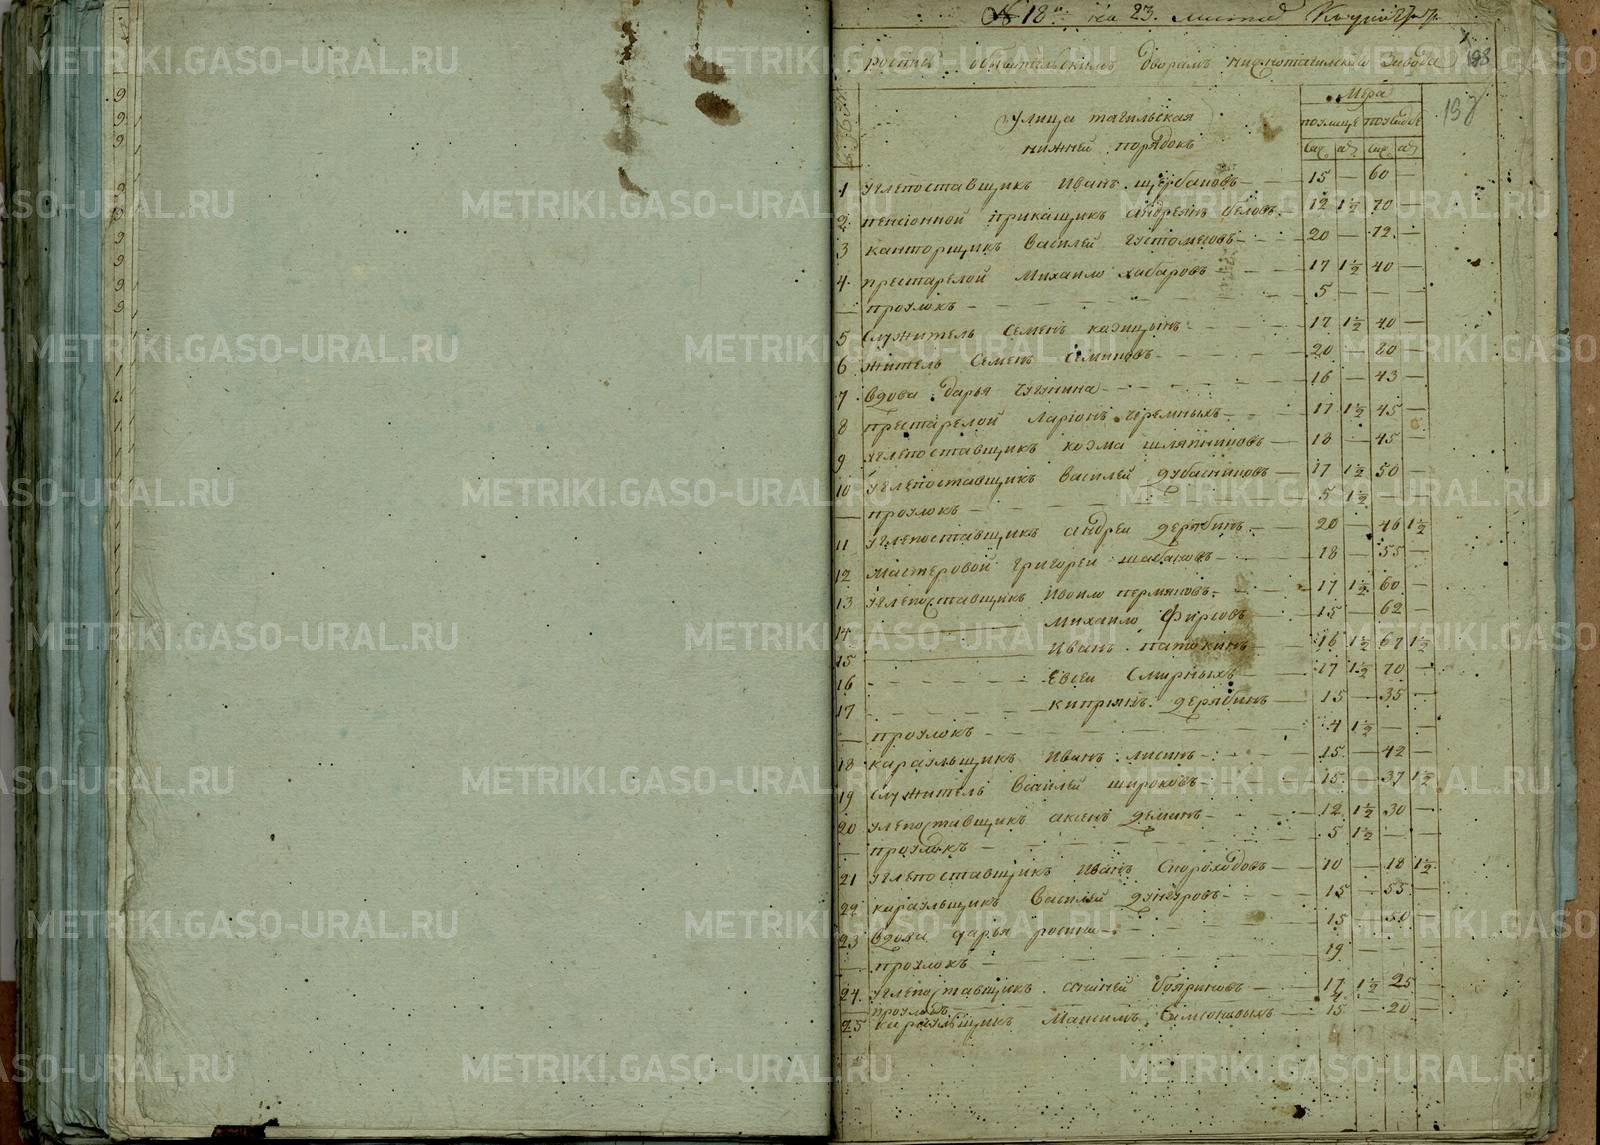 № 18й на 23. листах
роспись обывательскимъ дворамъ нижнотагилскаго завода
198
улица тагильская
нижней порядокъ
мѣра
по улице по усадбе
саж. ар. саж. ар.
1 углепоставщикъ Иванъ щербаковъ 15 — 60 —
2 пенсионной прикащикъ андреянъ беловъ 12 1½ 70 —
3 канторщикъ василей густомесовъ 20 — 72 —
4 престарелой михаило хабаровъ 17 1½ 40 —
— проулокъ 5 — — —
5 служитель семенъ казицынъ 17 1½ 40 —
6 житель семенъ семиновъ 20 — 20 —
7 вдова дарья чугунина 16 — 43 —
8 престарелой ларионъ черемныхъ 17 1½ 45 —
9 углепоставщикъ козма шляпниковъ 18 — 45 —
10 углепоставщикъ василей дубасниковъ 17 1½ 50 —
— проулокъ 5 1½ — —
11 углепоставщикъ андреи дерябинъ 20 — 46 1½
12 мастеровой григореи шабановъ 18 — 55 —
13 углепоставщикъ Ивоило пермяковъ 17 1½ 60 —
14 михаило Фирсовъ 15 — 62 —
15 Иванъ патокинъ 16 1½ 67 1½
16 Евсеи Смирныхъ 17 1½ 70 —
17 киприянъ дерябинъ 15 — 35 —
— проулокъ 4 1½ — —
18 караульщикъ Иванъ лисинъ 15 — 42 —
19 служитель василей широковъ 15 — 37 1½
20 углепоставщикъ аксенъ деминъ 12 1½ 30 —
— проулокъ 5 1½ — —
21 углепоставщикъ Иванъ Скороходовъ 10 — 18 1½
22 караульщикъ василей дунгуровъ 15 — 55 —
23 вдова дарья 15 — 50 —
— проулокъ 19 — — —
24 углепоставщикъ бояриновъ 17 1½ 25 —
проулокъ 4
25 караульщикъ Максимъ 15 — 20 —
METRIKI.GASO-URAL.RU